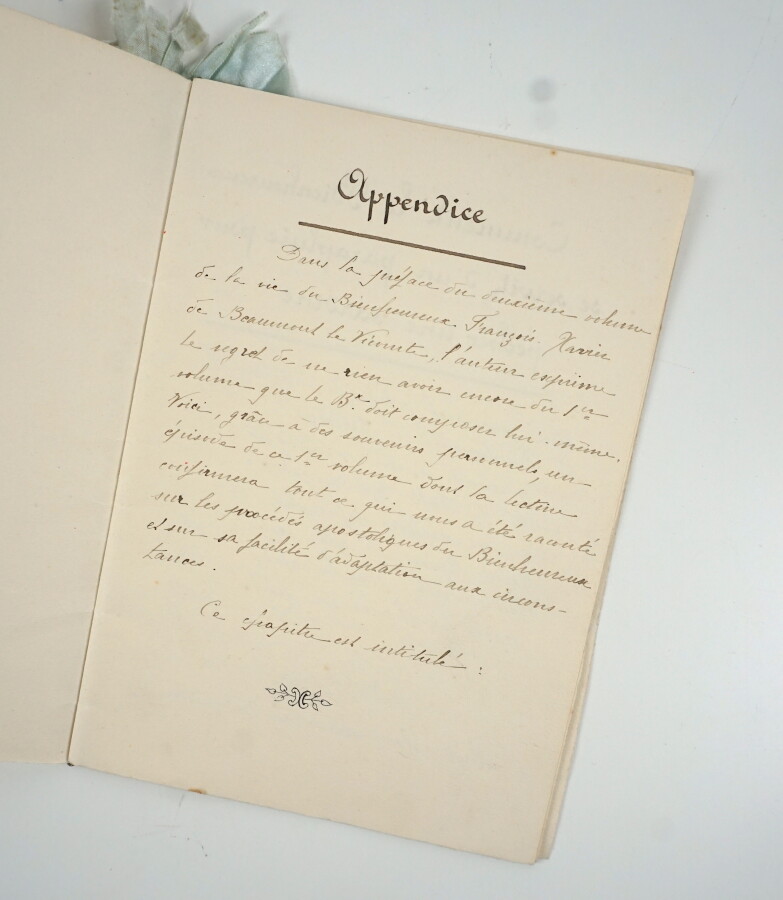 Appendice
Dans la préface du deuxième volume
de la vie du Bienheureux François. Xavier
de Beaumont le Vicomte, l'auteur exprime
le regret de ne rien avoir encore du 1er
volume que le Bx doit composer lui-même.
Voici, grâce à des souvenirs personnels, un
épisode de ce 1er volume dont la lecture
confirmera tout ce qui nous a été raconté
sur les procédés apostoliques du Bienheureux
et sur sa facilité d'adaptation aux circons-
tances.
Ce chapitre est intitulé :